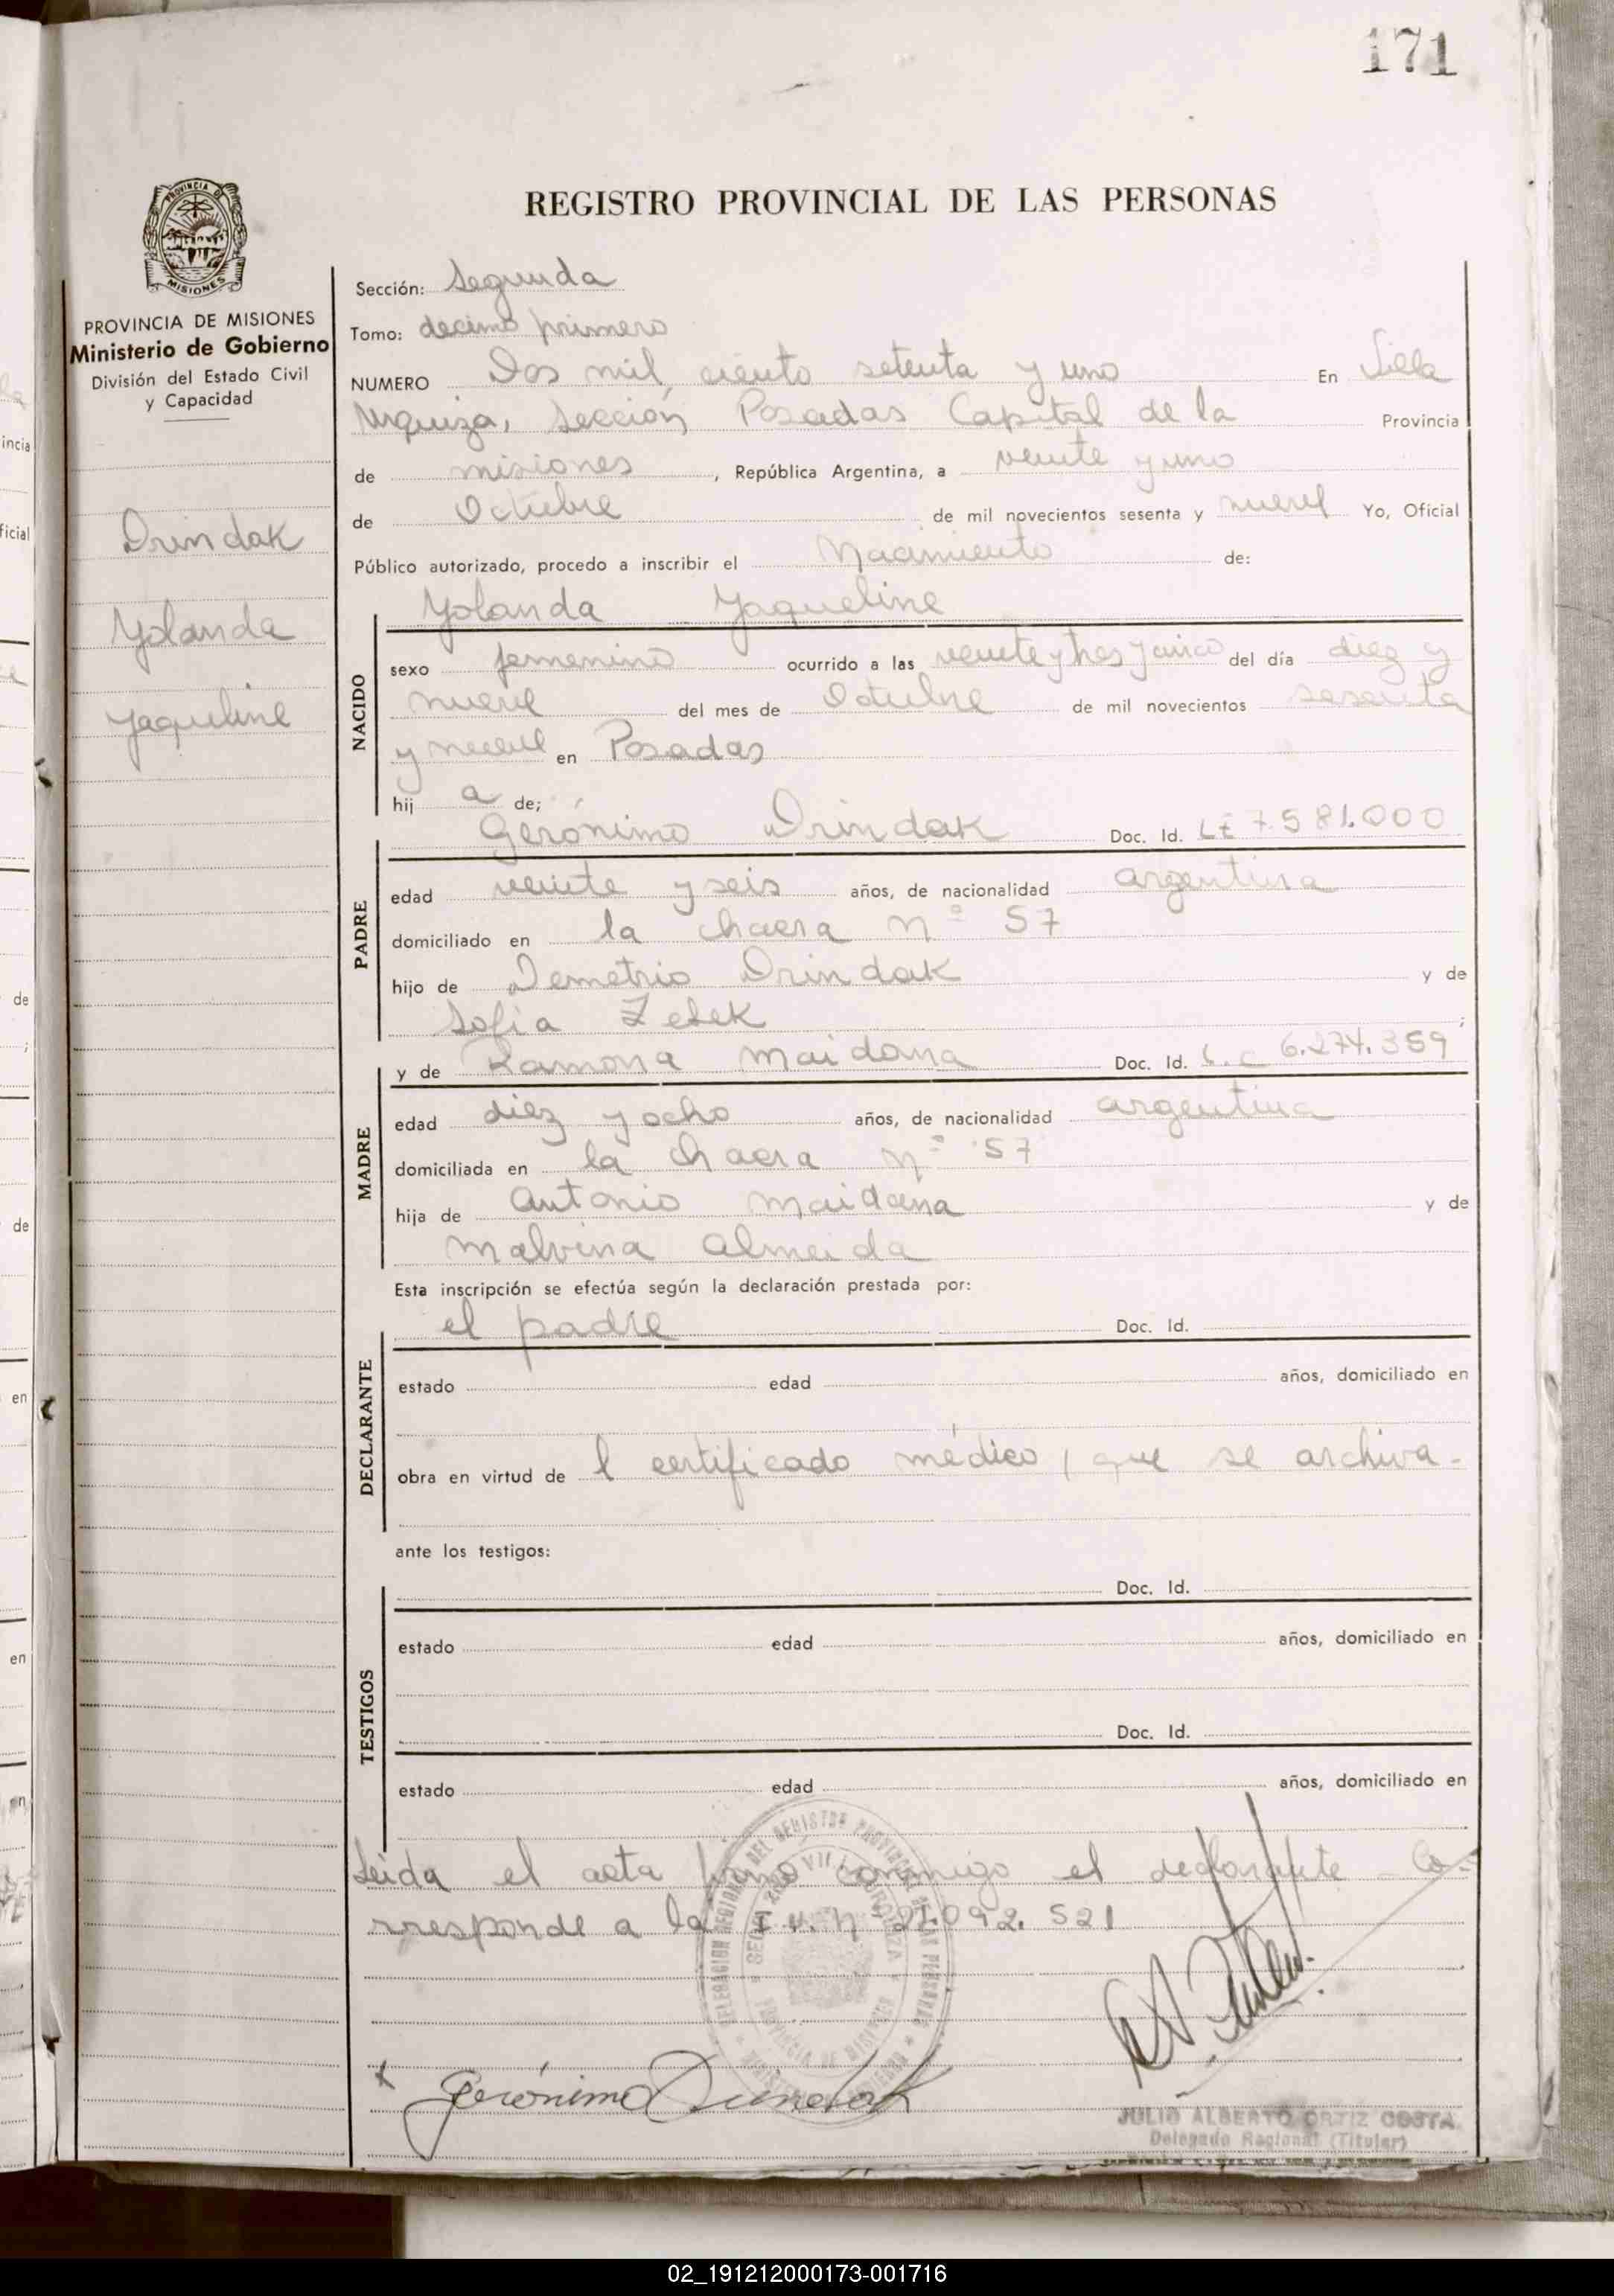 171
REGISTRO PROVINCIAL DE LAS PERSONAS
PROVINCIA DE MISIONES
PROVINCIA DE MISIONES
Ministerio de Gobierno
División del Estado Civil
y Capacidad
Drindak
Yolanda
Yaqueline
Sección: Segunda
Tomo: decimo primero
NUMERO Dos mil ciento setenta y uno En Villa
Urquiza, Sección Posadas Capital de la Provincia
de misiones, República Argentina, a veinte y uno
de Octubre de mil novecientos sesenta y nueve Yo, Oficial
Público autorizado, procedo a inscribir el Nacimiento de:
Yolanda Yaqueline
NACIDO
sexo femenino ocurrido a las veinte y tres y cinco del día diez y
nueve del mes de Octubre de mil novecientos sesenta
y nueve en Posadas
hij a de;
Gerónimo Drindak Doc. Id. LE 7.581.000
PADRE
edad veinte y seis años, de nacionalidad argentina
domiciliado en la chacra Nº 57
hijo de Demetrio Drindak y de
Sofia Zebek;
y de Ramona maidana Doc. Id. L.C 6.274.359
MADRE
edad diez y ocho años, de nacionalidad argentina
domiciliada en la chacra Nº 57
hija de Antonio maidana y de
malvina almeida
Esta inscripción se efectúa según la declaración prestada por:
el padre Doc. Id.
DECLARANTE
estado edad años, domiciliado en
obra en virtud de l certificado médico, que se archiva.
ante los testigos:
Doc. Id.
TESTIGOS
estado edad años, domiciliado en
Doc. Id.
estado edad años, domiciliado en
Leida el acta firmo conmigo el declarante - Co-
rresponde a la I.U. Nº 21.092.521
Gerónimo Drindak
JULIO ALBERTO ORTIZ COSTA
Delegado Regional (Titular)
02_191212000173-001716